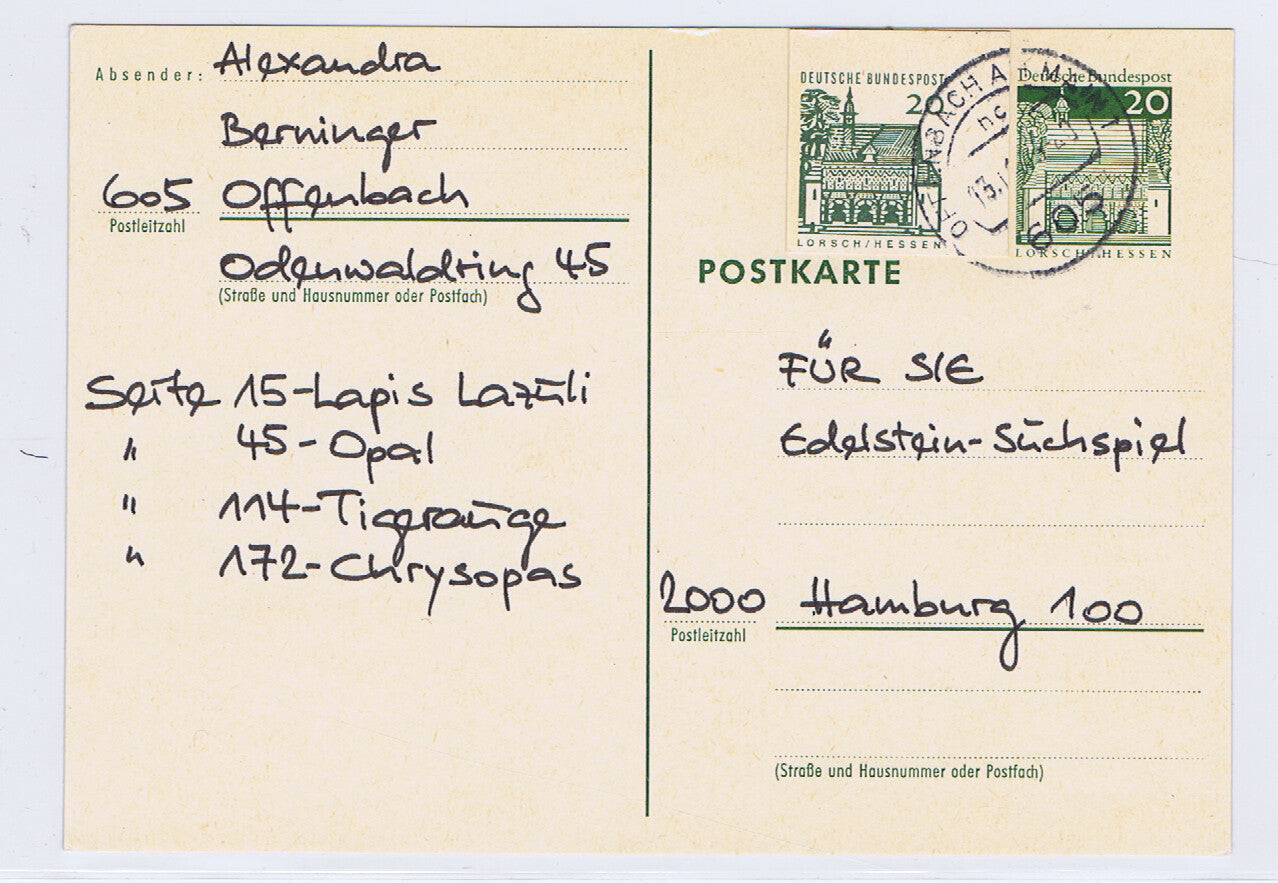 Absender: Alexandra
Berninger
605 Offenbach
Postleitzahl
Odenwaldring 45
(Straße und Hausnummer oder Postfach)
Seite 15-Lapis Lazuli
" 45-Opal
" 114-Tigerauge
" 172-Chrysopas
DEUTSCHE BUNDESPOST
20
LORSCH/HESSEN
Deutsche Bundespost
20
LORSCH/HESSEN
605
POSTKARTE
FÜR SIE
Edelstein-Suchspiel
2000 Hamburg 100
Postleitzahl
(Straße und Hausnummer oder Postfach)